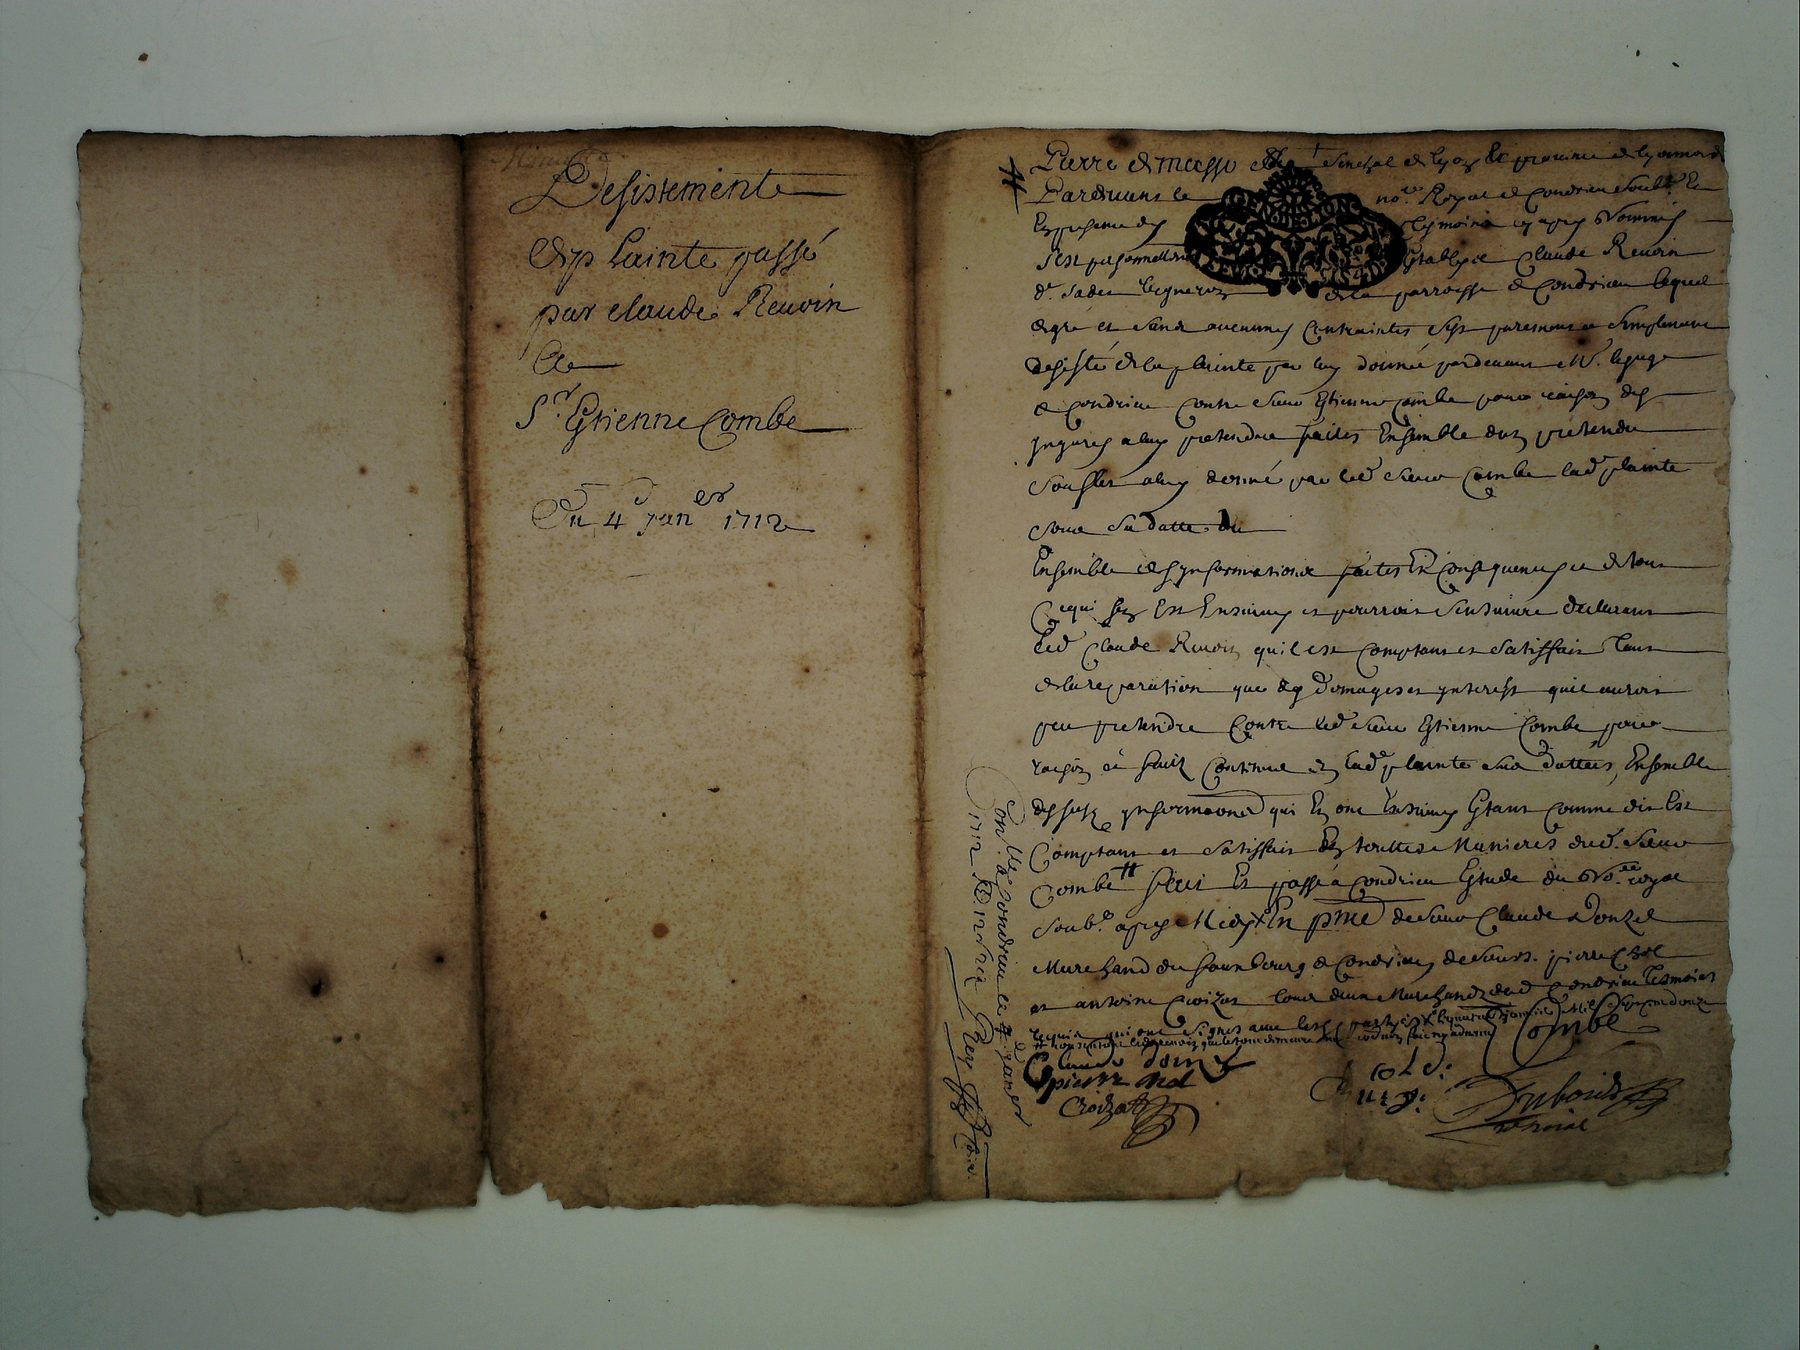 Desistement
de plainte passé
par claude Revoin
A
Sr. Estienne Combe
Du 4e janer 1712
Pierre de masso senechal de lyon et province de lyonnois
Pardevant le nore. Royal de Condrieu soubz. et
En presence des tesmoins cy apres nommés
s'est personnellement Estably claude Revoin
vigneron de la parroisse de Condrieu lequel
de gré et sans aucunes contraintes s'est purement et simplement
desisté de la plainte par luy donnée pardevant Mr. le juge
de Condrieu contre sieur Estienne combe pour raison des
injures a luy pretendue faites Ensemble d'un pretendu
soufflet a luy donné par led. sieur Combe lad. plainte
sous sa datte du
Ensemble des informations faites En consequences et de tout
ce qui s'en Est Ensuivy et pourroit s'ensuivre declarant
led. Claude Revoin qu'il est comptant et satisffait tant
de la reparation que des domages et interest qu'il auroit
peu pretendre contre led. sieur Estienne Combe pour
raison du fait contenue en lad. plainte sus dattées, Ensemble
informaons qui En ont Ensuivy Estant comme dit Est
Comptant et satisffait En touttes Manieres dud. sieur
Combe fait Et passé a Condrieu Estude du Nore. royal
soubz. apres Midy En pnce de sieur Claude Donzel
Marchand du faunbourg de Condrieu, de sieurs. pierre
et antoine Croizat tous deux Marchands dud. Condrieu tesmoins
requis qui ont signés avec les parties
Combe
Claude
pierre
Croizat
Dubouis
no. roial
Conlle. a Condrieu le 4e. janer
1712 R. 12